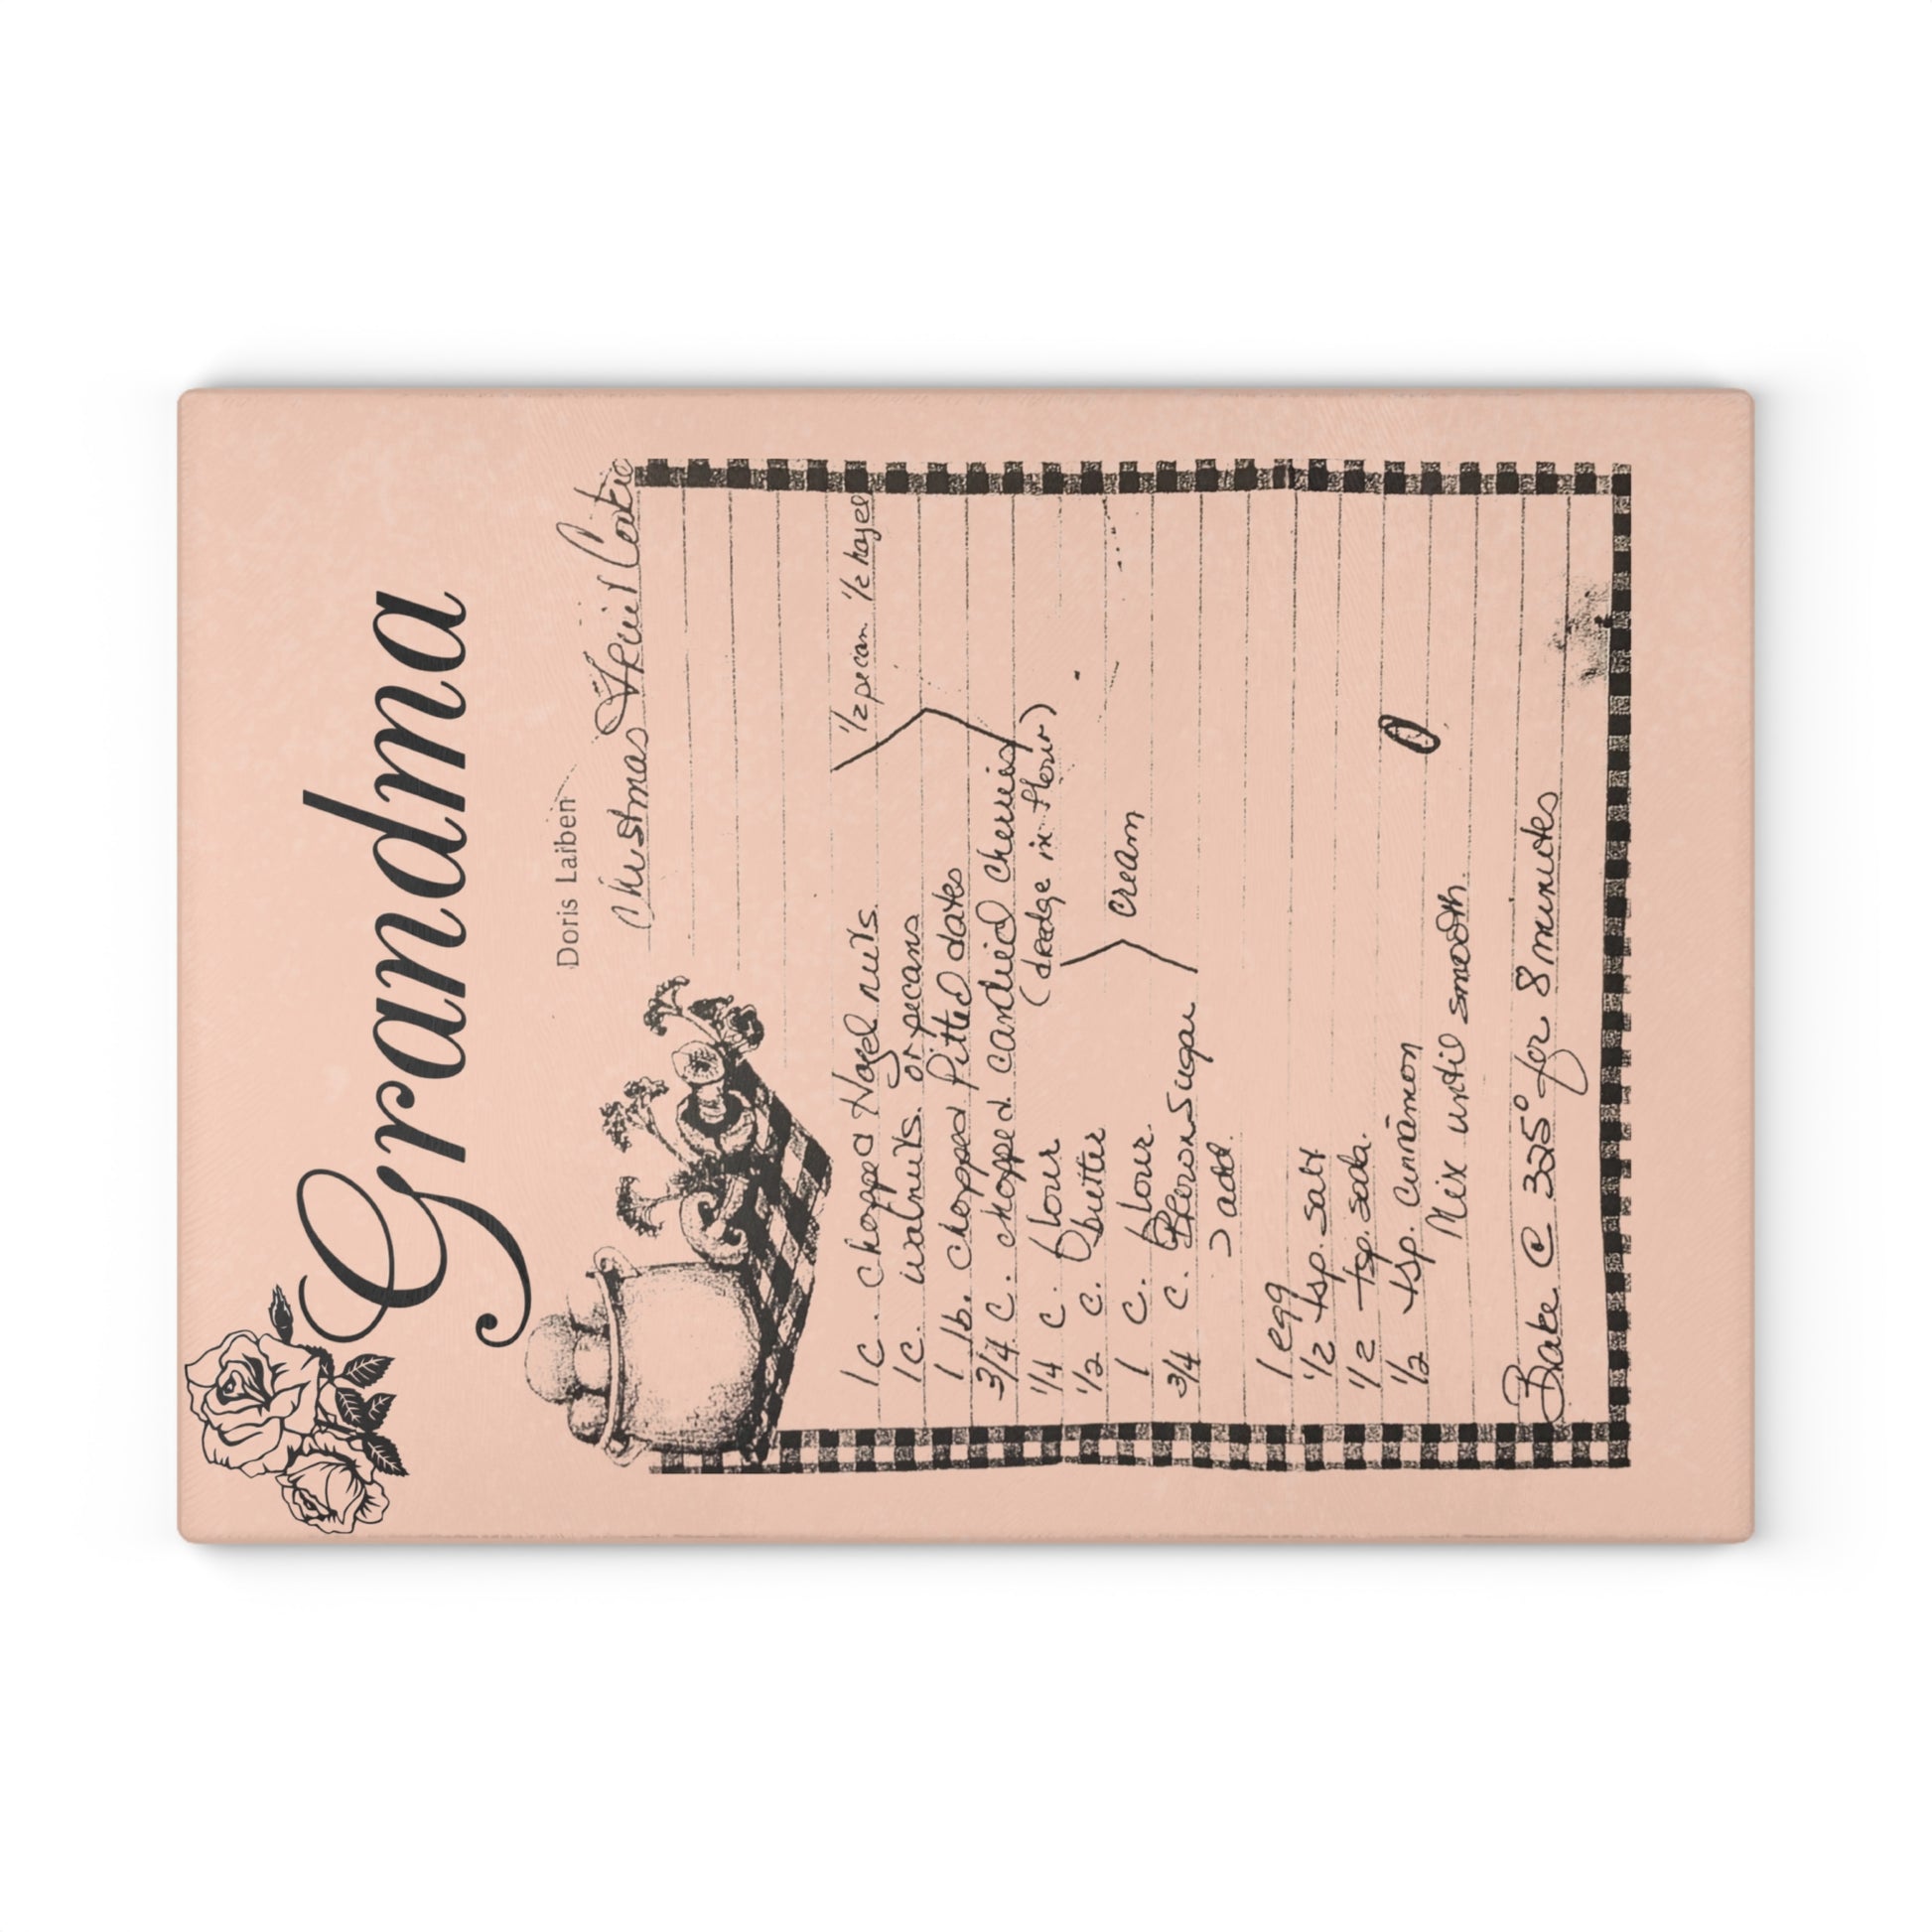 Grandma
Doris Laiben
Christmas Fruit Cookie
1 c. chopped Hazel nuts
1 c. walnuts. or pecans
1/2 pecan 1/2 hazel
1 lb. chopped Pitted dates
3/4 c. chopped candied cherries
1/4 c flour (dredge in flour)
1/2 c. butter
1 c. flour.
cream
3/4 c. Brown Sugar
add.
1 egg
1/2 tsp. salt
1/2 tsp. soda.
1/2 tsp. Cinnamon
Mix until smooth.
Bake @ 325° for 8 minutes